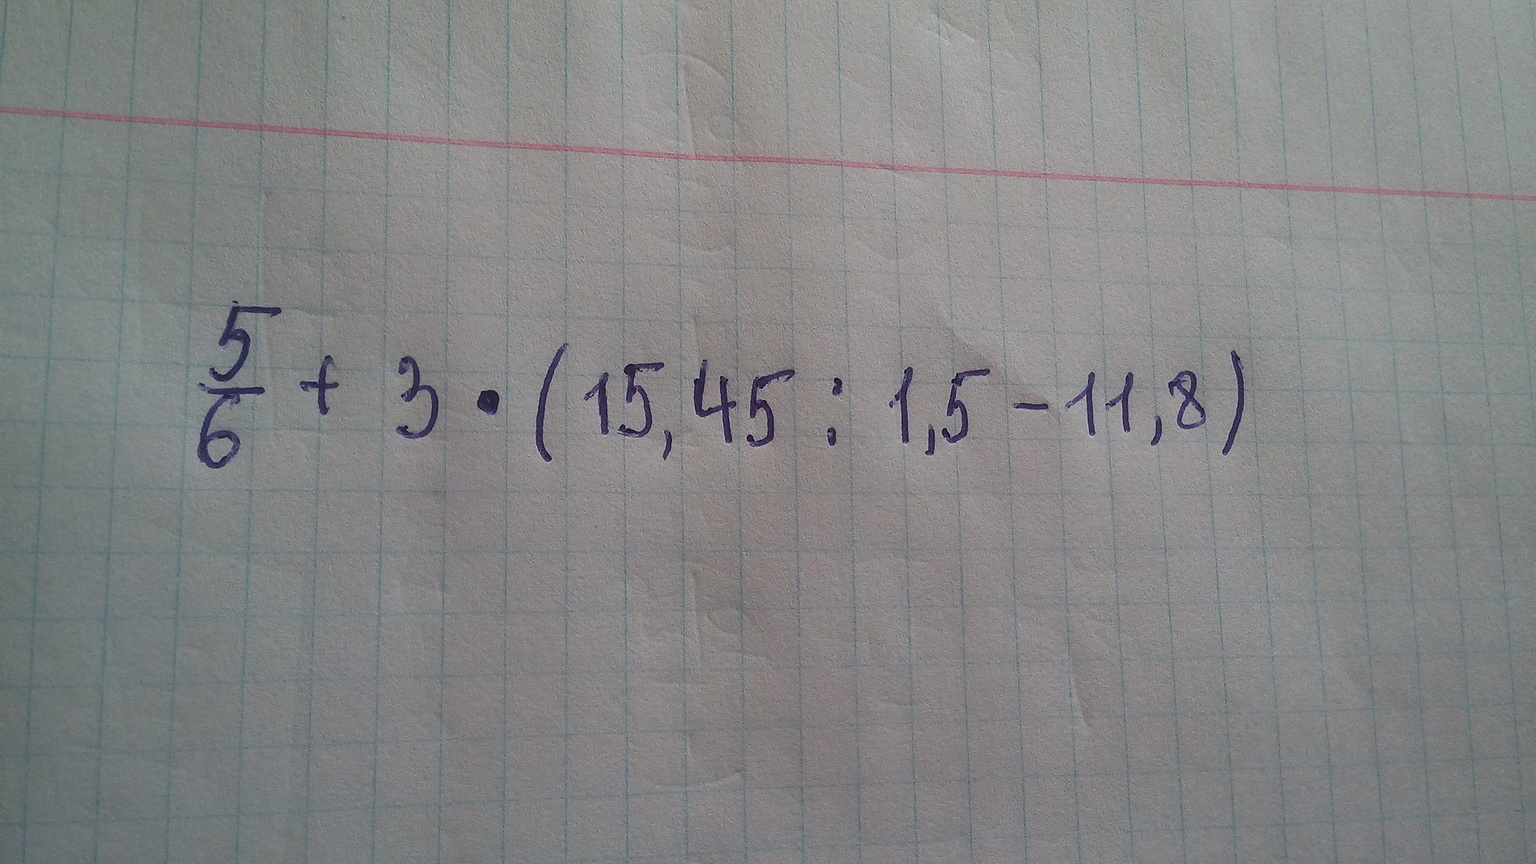 5/6 + 3 • (15,45 : 1,5 - 11,8)